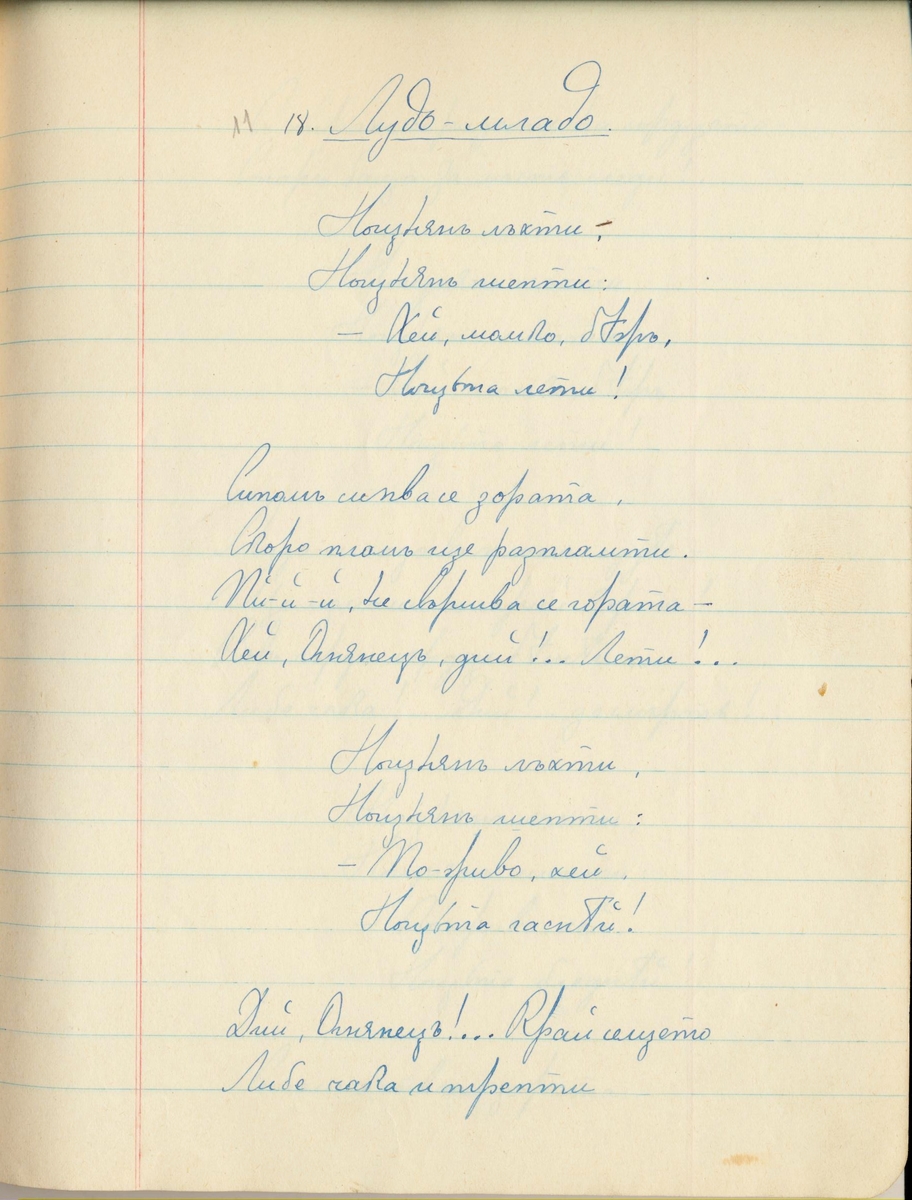 11 18. Лудо-младо.
Нощнянъ лъхти,
Нощнянъ шепти:
– Хей, момко,
Нощьта лети!
сипва се зората,
Скоро пламъ ще разпламти.
Ий-й-й, не свършва се гората –
Хей, Огнянецъ, дий!... Лети!...
Нощнянъ лъхти,
Нощнянъ шепти:
– По-живо, хей,
Нощьта гаснѣй!
Дий, Огнянецъ!... Край селцето
Либе чака и трепти